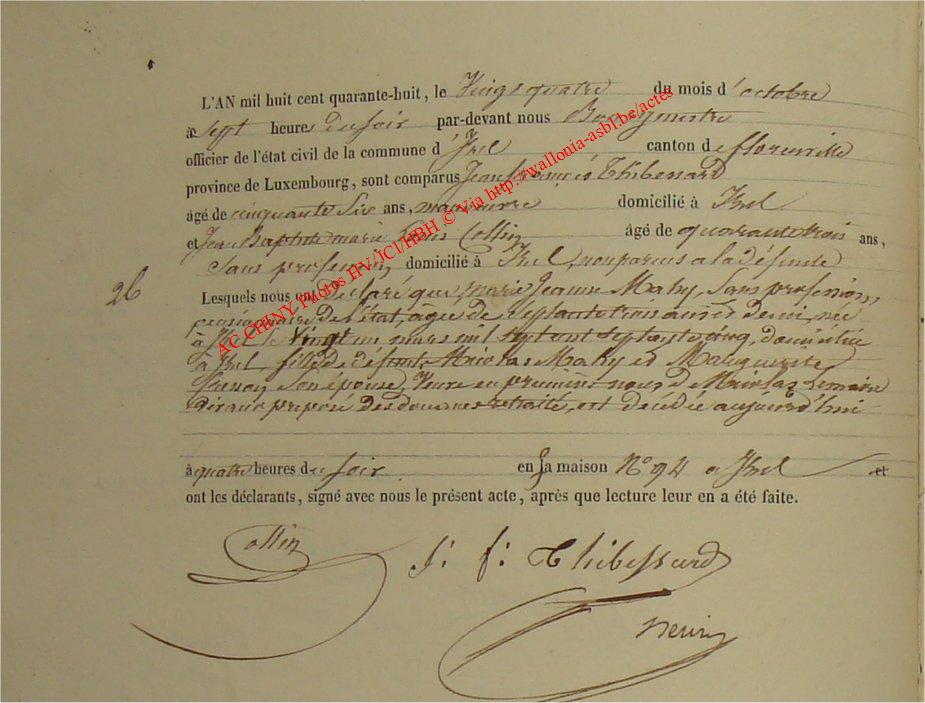 L'AN mil huit cent quarante-huit, le Vingt quatre du mois d'octobre
à Sept heures du soir par-devant nous Bourgmestre
officier de l'état civil de la commune d'Izel canton de florenville
province de Luxembourg, sont comparus Jean françois Thibessard
âgé de cinquante Six ans, manœuvre domicilié à Izel
et Jean Baptiste marie Collin âgé de quarante trois ans,
Sans profession domicilié à Izel, non parens a la défunte
26
Lesquels nous ont déclaré que marie Jeanne Mahy, Sans profession,
pensionnaire de l'état, agée de Septante trois ans et demi, née
à Izel le Vingt un mars mil Sept cent Septante cinq, domiciliée
à Izel, fille de défunts Nicolas Mahy et Marguerite
Son épouse, Veuve en premières noces de Nicolas Lemaire
préposé des douanes retraité, est décédée aujourd'hui
à quatre heures du soir en sa maison N° 94 a Izel et
ont les déclarants, signé avec nous le présent acte, après que lecture leur en a été faite.
Collin
J: f: Thibessard
henry
AC CHINY, Photos HV/JCl/HBH © Via http://wallonia-asbl.be/actes